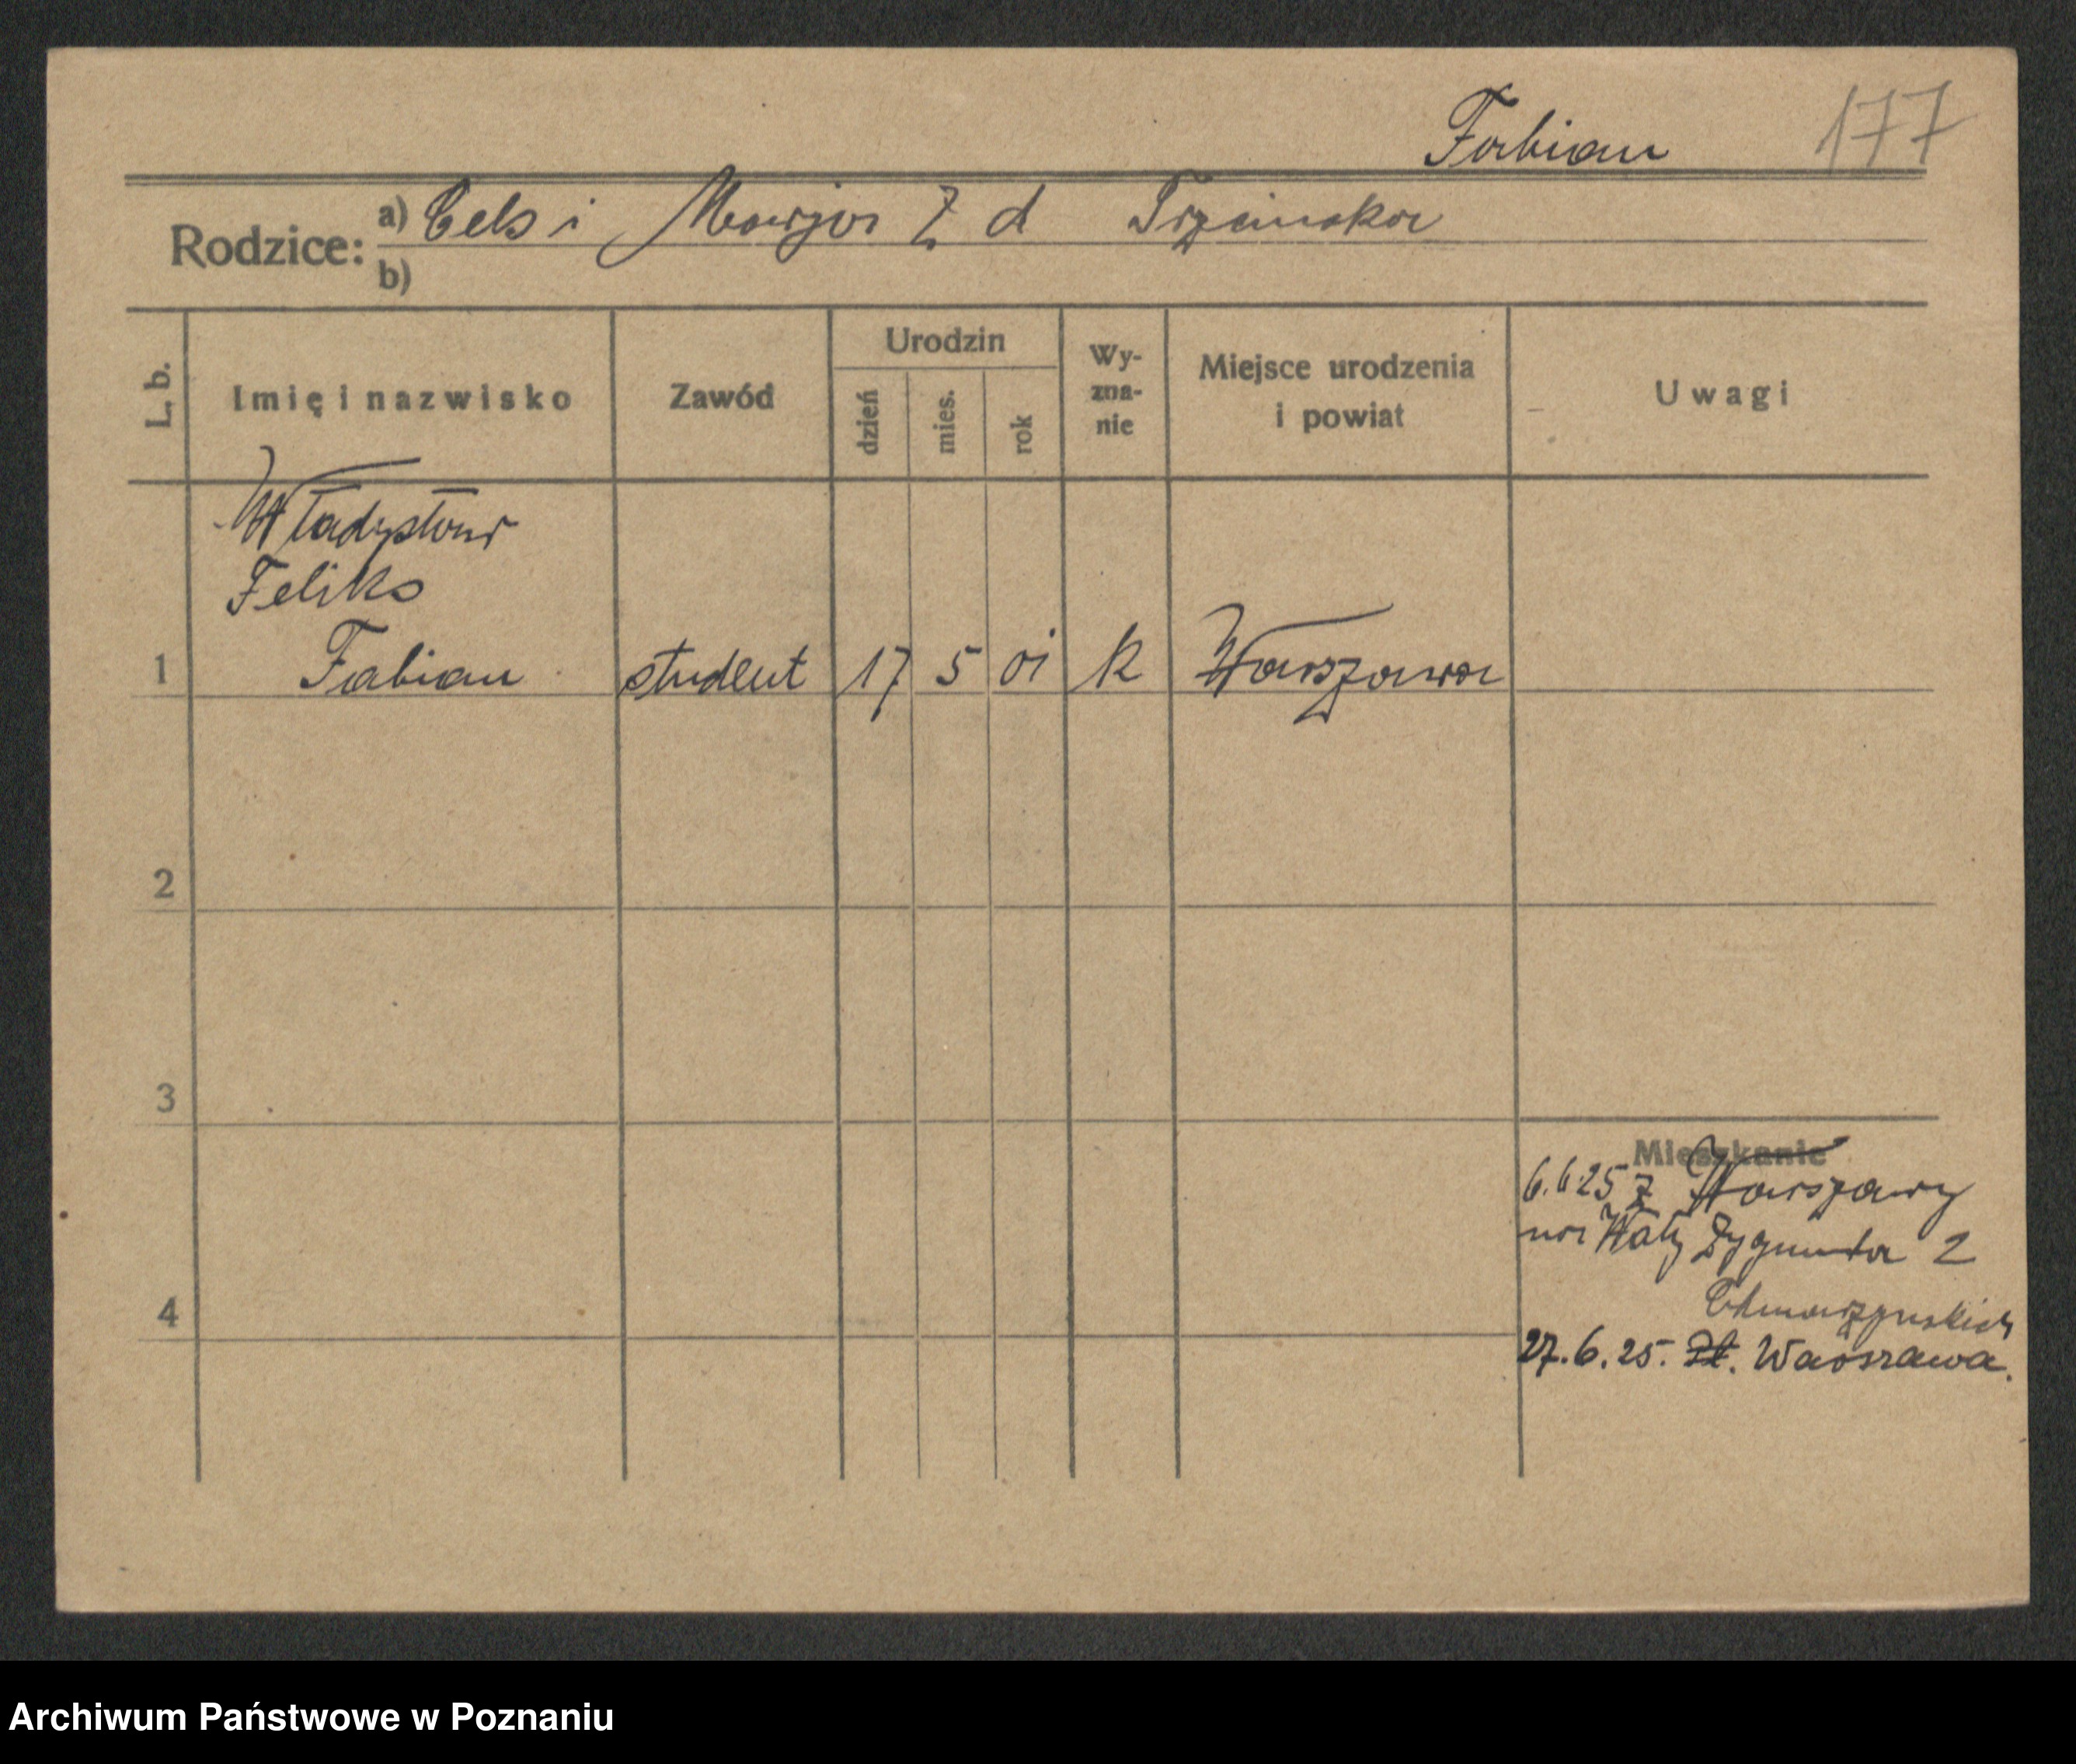 Fabian 177
Rodzice: a) Cels i Marja z d Trzcinska
b)
L. b. Imię i nazwisko Zawód Urodzin dzień mies. rok Wy-zna-nie Miejsce urodzenia i powiat Uwagi
Władysław
Feliks
1 Fabian student 17 5 01 k Warszawa
2
3
Mieszkanie
6.6.25 z Warszawy
na Wały Zygmunta 2
Chmarzynskich
4
27.6.25. Warszawa.
Archiwum Państwowe w Poznaniu